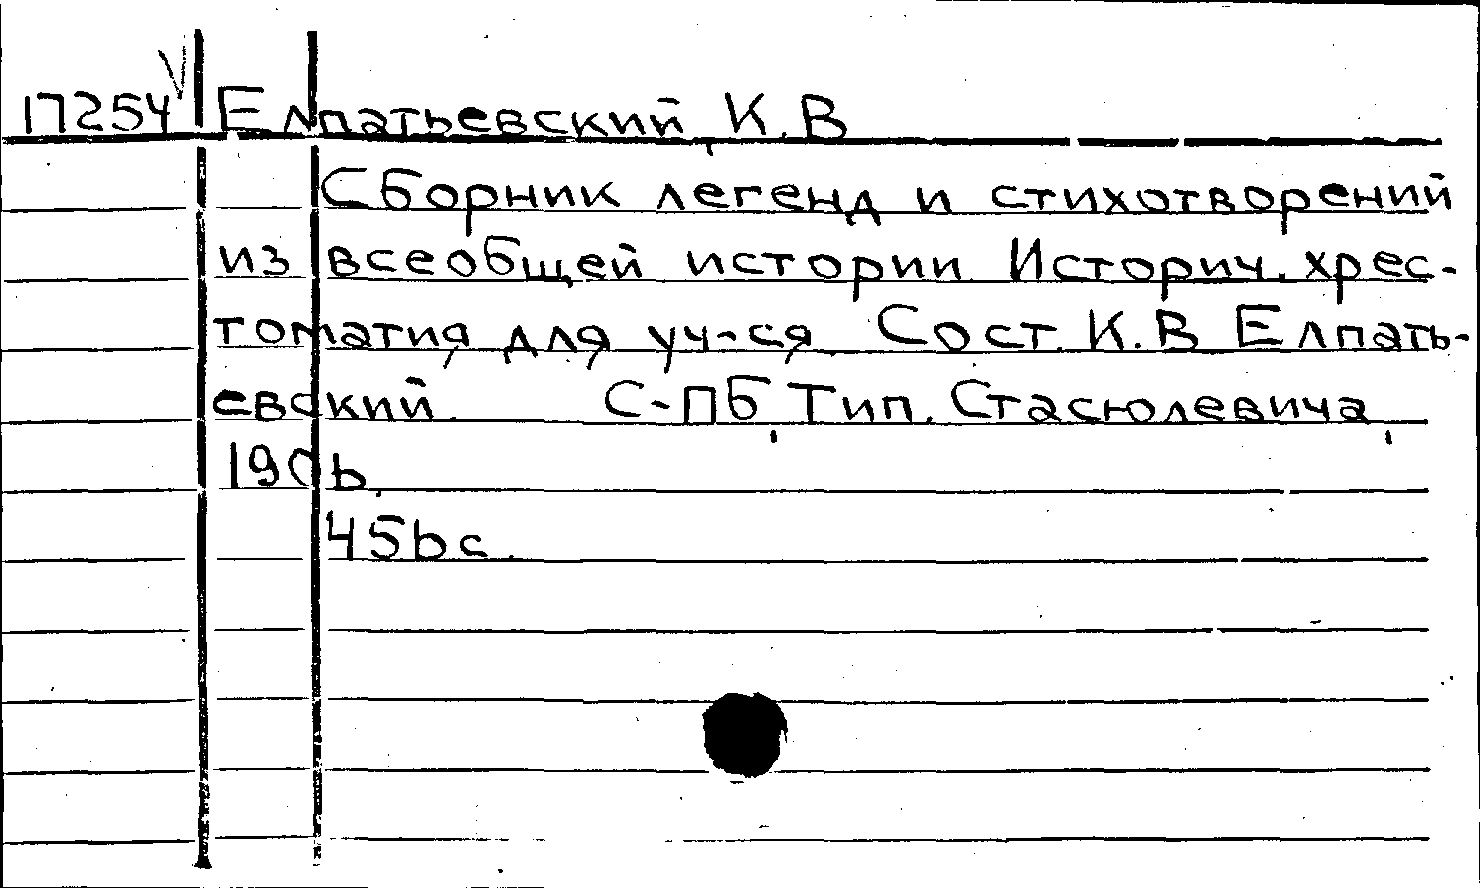 17254 Елпатьевский, К.В
Сборник легенд и стихотворений
из всеобщей истории. Историч. хрес-
томатия для уч-ся. Сост. К.В Елпать-
евский. С-ПБ, Тип. Стасюлевича,
1906.
456 с.